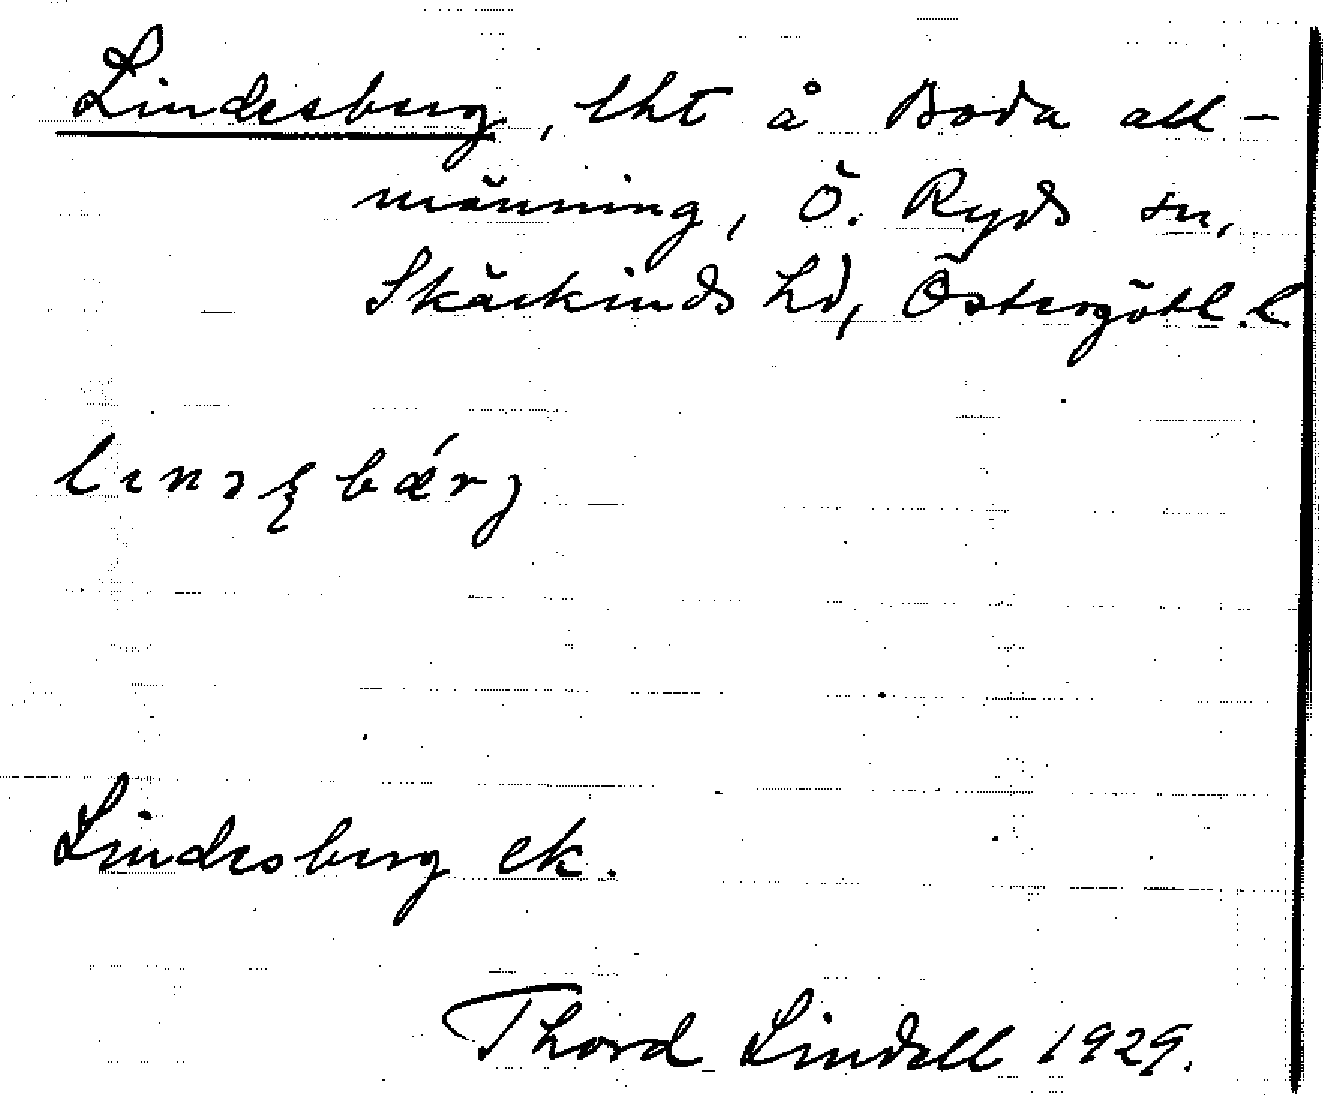 Lindesberg, lht å Boda all-
männing, Ö. Ryds sn,
Skärkinds hd, Östergötl. l.
Lindesberg ek.
Thord Lindell 1929.